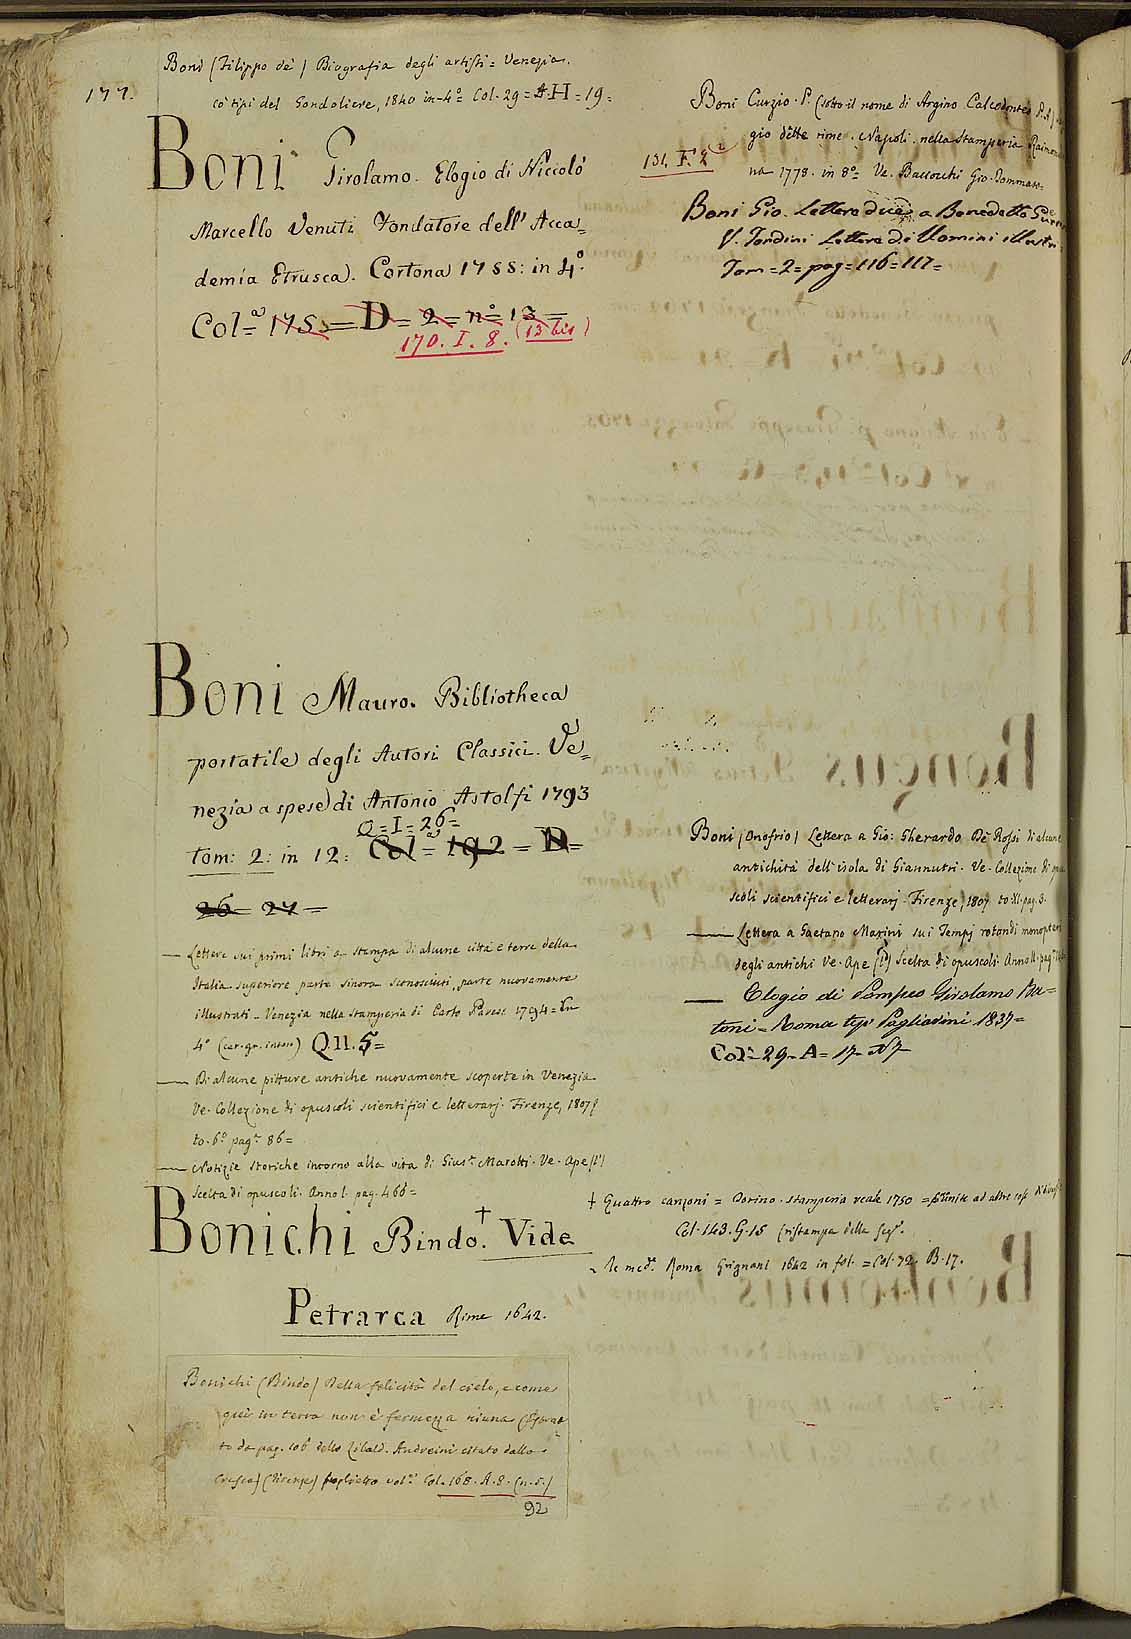 177.
Boni (Filippo de') Biografia degli artisti = Venezia.
co' tipi del Gondoliere, 1840 in-4º = Col. 29 = A. H = 19 =
Boni Girolamo. Elogio di Niccolò
Marcello Venuti Fondatore dell' Acca=
demia Etrusca. Cortona 1755: in 4º.
Col=a 175 = D = 2 = nº = 13 =
170. I. 8. (13 bis)
Boni Mauro. Bibliotheca
portatile degli Autori Classici. Ve=
nezia a spese di Antonio Astolfi 1793
Q = I = 26 =
tom: 2: in 12: Col=a 192 = D =
26 = 27 =
— Lettere sui primi libri a stampa di alcune città e terre della
Italia superiore parte sinora sconosciuti, parte nuovamente
illustrati - Venezia nella stamperia di Carlo Palese 1794 = in
4º (car. gr. inton) Q.II.5 =
— Di alcune pitture antiche nuovamente scoperte in Venezia
Ve. Collezione di opuscoli scientifici e letterarj. Firenze, 1807
to. 6º pag. 86 =
— Notizie storiche intorno alla vita di Gius. Marotti. Ve. Ape (l')
Scelta di opuscoli. Anno I. pag. 466 =
Bonichi Bindo. † Vide
Petrarca Rime 1642.
Bonichi (Bindo) Della felicità del cielo, e come
quì in terra non è fermezza niuna
to da pag. 106 dello Zibald. Andreini citato dalla
Crusca) (Firenze) foglietto vol. Col. 168. A. 8. (n. 5.)
92
Boni Curzio. P. (sotto il nome di Argino Calcodonteo P. A)
gio dette rime. Napoli. nella Stamperia Raimon
131. F. 2
na 1778. in 8º = Ve. Bacocchi Gio. Dommaso =
Boni Gio. Lettere due a Benedetto
V. Tondini Lettere di Uomini illustri
Tom = 2 = pag = 116 = 117 =
Boni (Onofrio) Lettera a Gio: Gherardo De Rossi di alcune
antichità dell' isola di Giannutri. Ve. Collezione di opu
scoli scientifici e letterarj. Firenze, 1807 to. XI. pag. 3.
— Lettera a Gaetano Marini sui Tempj rotondi monopteri
degli antichi Ve. Ape (l') Scelta di opuscoli. Anno II. pag.
— Elogio di Pompeo Girolamo Ba=
toni = Roma tip. Pagliarini 1837 =
Col. = 29 - A = 17 - N7
† Quattro canzoni = Torino. stamperia reale 1750 = unite ad altre cose
Col. 143. G. 15 (ristampa della seg.
- le med. Roma Grignani 1642 in fol. = Col. 72. B. 17.